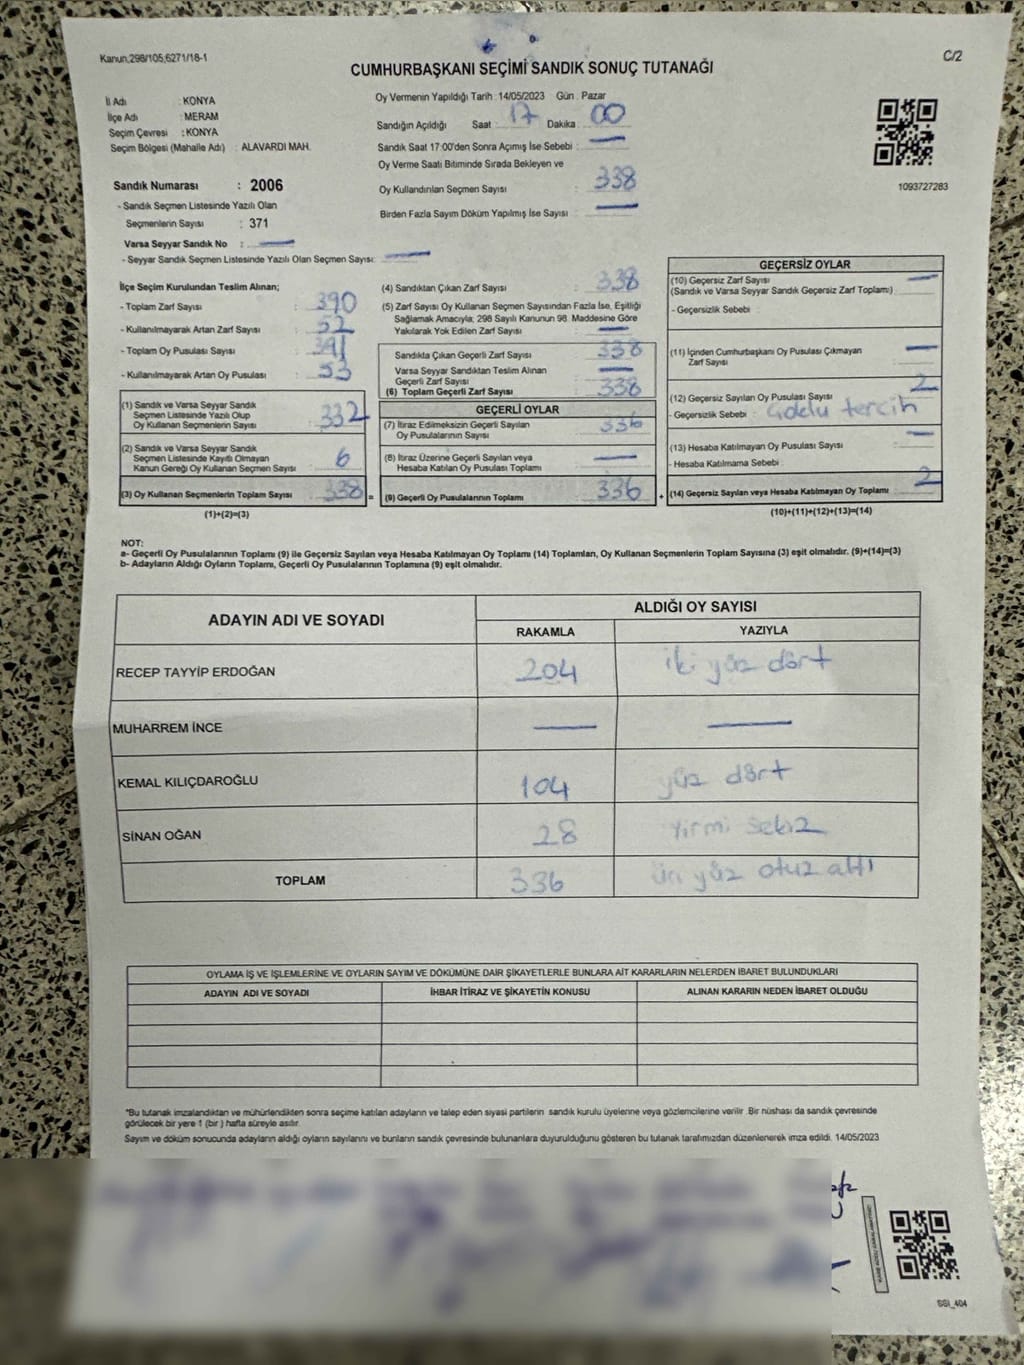 Kanun;298/105;6271/18-1
C/2
CUMHURBAŞKANI SEÇİMİ SANDIK SONUÇ TUTANAĞI
İl Adı : KONYA
İlçe Adı : MERAM
Seçim Çevresi : KONYA
Seçim Bölgesi (Mahalle Adı) : ALAVARDI MAH.
Sandık Numarası : 2006
- Sandık Seçmen Listesinde Yazılı Olan
Seçmenlerin Sayısı : 371
Varsa Seyyar Sandık No :
- Seyyar Sandık Seçmen Listesinde Yazılı Olan Seçmen Sayısı:
Oy Vermenin Yapıldığı Tarih : 14/05/2023 Gün : Pazar
Sandığın Açıldığı Saat : 17 Dakika : 00
Sandık Saat 17:00'den Sonra Açımış İse Sebebi :
Oy Verme Saati Bitiminde Sırada Bekleyen ve
Oy Kullandırılan Seçmen Sayısı : 338
Birden Fazla Sayım Döküm Yapılmış İse Sayısı :
1093727283
İlçe Seçim Kurulundan Teslim Alınan;
- Toplam Zarf Sayısı : 390
- Kullanılmayarak Artan Zarf Sayısı : 52
- Toplam Oy Pusulası Sayısı : 391
- Kullanılmayarak Artan Oy Pusulası : 53
(1) Sandık ve Varsa Seyyar Sandık
Seçmen Listesinde Yazılı Olup
Oy Kullanan Seçmenlerin Sayısı 332
(2) Sandık ve Varsa Seyyar Sandık
Seçmen Listesinde Kayıtlı Olmayan
Kanun Gereği Oy Kullanan Seçmen Sayısı 6
(3) Oy Kullanan Seçmenlerin Toplam Sayısı 338 =
(1)+(2)=(3)
(4) Sandıktan Çıkan Zarf Sayısı : 338
(5) Zarf Sayısı Oy Kullanan Seçmen Sayısından Fazla İse, Eşitliği
Sağlamak Amacıyla; 298 Sayılı Kanunun 98. Maddesine Göre
Yakılarak Yok Edilen Zarf Sayısı :
Sandıkta Çıkan Geçerli Zarf Sayısı : 338
Varsa Seyyar Sandıktan Teslim Alınan
Geçerli Zarf Sayısı :
(6) Toplam Geçerli Zarf Sayısı : 338
GEÇERLİ OYLAR
(7) İtiraz Edilmeksizin Geçerli Sayılan
Oy Pusulalarının Sayısı : 336
(8) İtiraz Üzerine Geçerli Sayılan veya
Hesaba Katılan Oy Pusulası Toplamı :
(9) Geçerli Oy Pusulalarının Toplamı : 336 +
GEÇERSİZ OYLAR
(10) Geçersiz Zarf Sayısı :
(Sandık ve Varsa Seyyar Sandık Geçersiz Zarf Toplamı)
- Geçersizlik Sebebi :
(11) İçinden Cumhurbaşkanı Oy Pusulası Çıkmayan
Zarf Sayısı :
(12) Geçersiz Sayılan Oy Pusulası Sayısı : 2
- Geçersizlik Sebebi : tercih
(13) Hesaba Katılmayan Oy Pusulası Sayısı :
- Hesaba Katılmama Sebebi :
(14) Geçersiz Sayılan veya Hesaba Katılmayan Oy Toplamı : 2
(10)+(11)+(12)+(13)=(14)
NOT:
a- Geçerli Oy Pusulalarının Toplamı (9) ile Geçersiz Sayılan veya Hesaba Katılmayan Oy Toplamı (14) Toplamları, Oy Kullanan Seçmenlerin Toplam Sayısına (3) eşit olmalıdır. (9)+(14)=(3)
b- Adayların Aldığı Oyların Toplamı, Geçerli Oy Pusulalarının Toplamına (9) eşit olmalıdır.
ADAYIN ADI VE SOYADI ALDIĞI OY SAYISI
RAKAMLA YAZIYLA
RECEP TAYYİP ERDOĞAN 204 iki yüz dört
MUHARREM İNCE
KEMAL KILIÇDAROĞLU 104 yüz dört
SİNAN OĞAN 28 Yirmi sekiz
TOPLAM 336 üç yüz otuz altı
OYLAMA İŞ VE İŞLEMLERİNE VE OYLARIN SAYIM VE DÖKÜMÜNE DAİR ŞİKAYETLERLE BUNLARA AİT KARARLARIN NELERDEN İBARET BULUNDUKLARI
ADAYIN ADI VE SOYADI İHBAR İTİRAZ VE ŞİKAYETİN KONUSU ALINAN KARARIN NEDEN İBARET OLDUĞU
*Bu tutanak imzalandıktan ve mühürlendikten sonra seçime katılan adayların ve talep eden siyasi partilerin sandık kurulu üyelerine veya gözlemcilerine verilir .Bir nüshası da sandık çevresinde
görülecek bir yere 1 (bir ) hafta süreyle asılır.
Sayım ve döküm sonucunda adayların aldığı oyların sayılarını ve bunların sandık çevresinde bulunanlara duyurulduğunu gösteren bu tutanak tarafımızdan düzenlenerek imza edildi. 14/05/2023
SSI_404